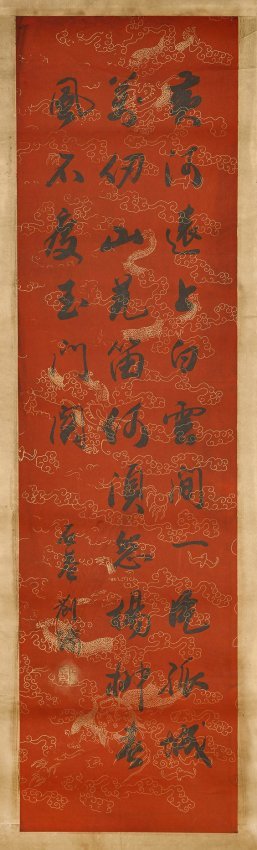 黃河遠上白雲間一片孤城
萬仞山羌笛何須怨楊柳春
風不度玉門關
石庵劉墉